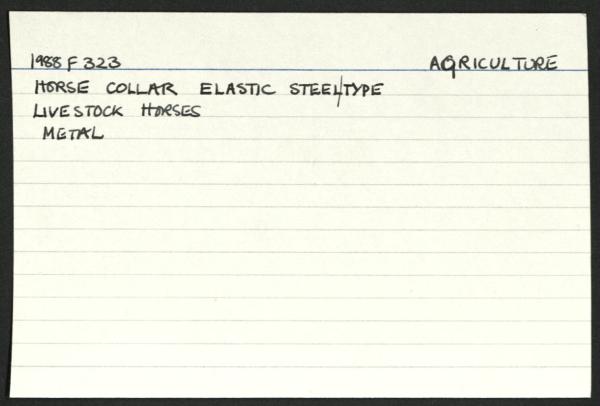 1988 F 323 AGRICULTURE
HORSE COLLAR ELASTIC STEEL/TYPE
LIVESTOCK HORSES
METAL